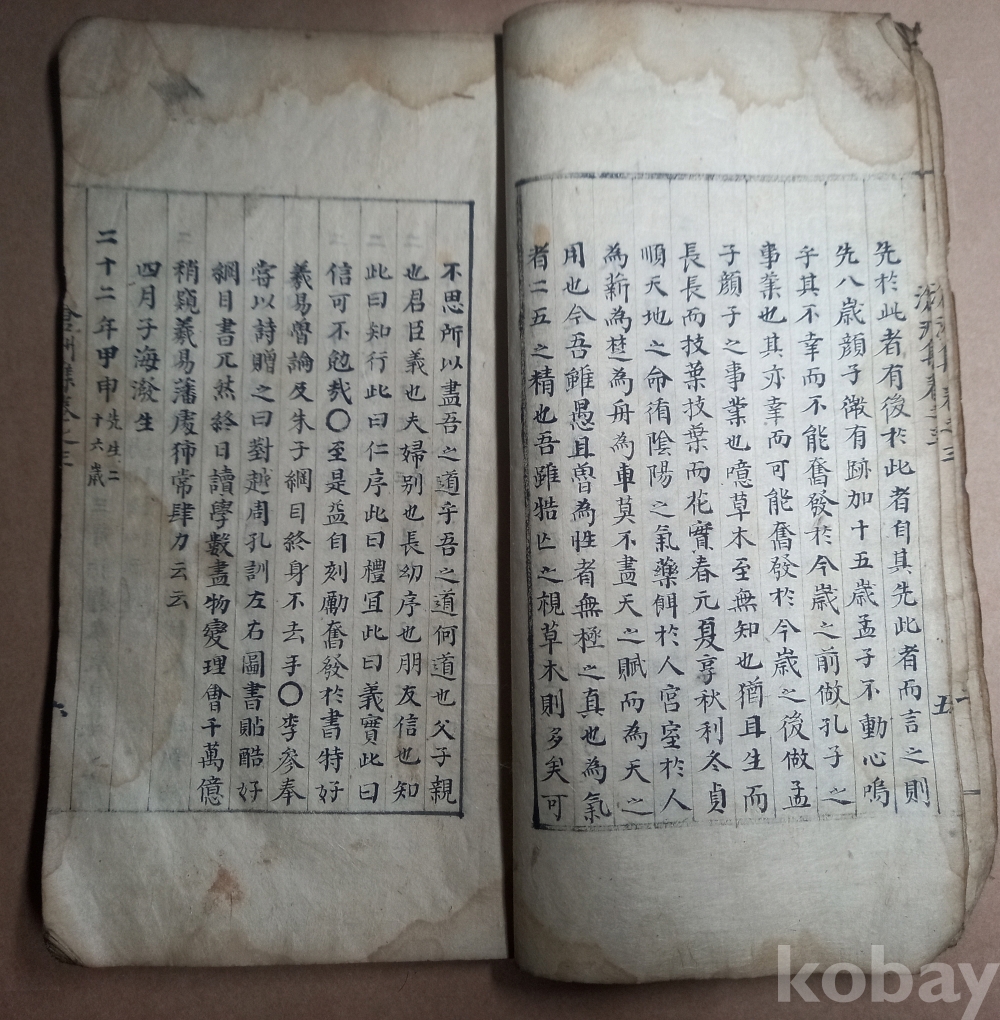 先於此者有後於此者自其先此者而言之則
先八歲顏子微有跡加十五歲孟子不動心嗚
乎其不幸而不能奮發於今歲之前做孔子之
事業也其亦幸而可能奮發於今歲之後做孟
子顏子之事業也噫草木至無知也猶且生而
長長而技葉技葉而花實春元夏享秋利冬貞
順天地之命循陰陽之氣藥餌於人宮室於人
為薪為埜為舟為車莫不盡天之賦而為天之
用也今吾雖愚且魯為性者無極之真也為氣
者二五之精也吾雖牿亡之視草木則多矣可
五
不思所以盡吾之道乎吾之道何道也父子親
也君臣義也夫婦別也長幼序也朋友信也知
此曰知行此曰仁序此曰禮宜此曰義實此曰
信可不勉哉〇至是益自刻勵奮發於書特好
羲易魯論及朱子綱目終身不去手〇李參奉
嘗以詩贈之曰對越周孔訓左右圖書貼酷好
綱目書兀然終日讀學數盡物變理會千萬億
稍窺羲易藩處
常肆力云云
四月子海潑生
二十二年甲申先生二十六歲
卷之三
六
kobay